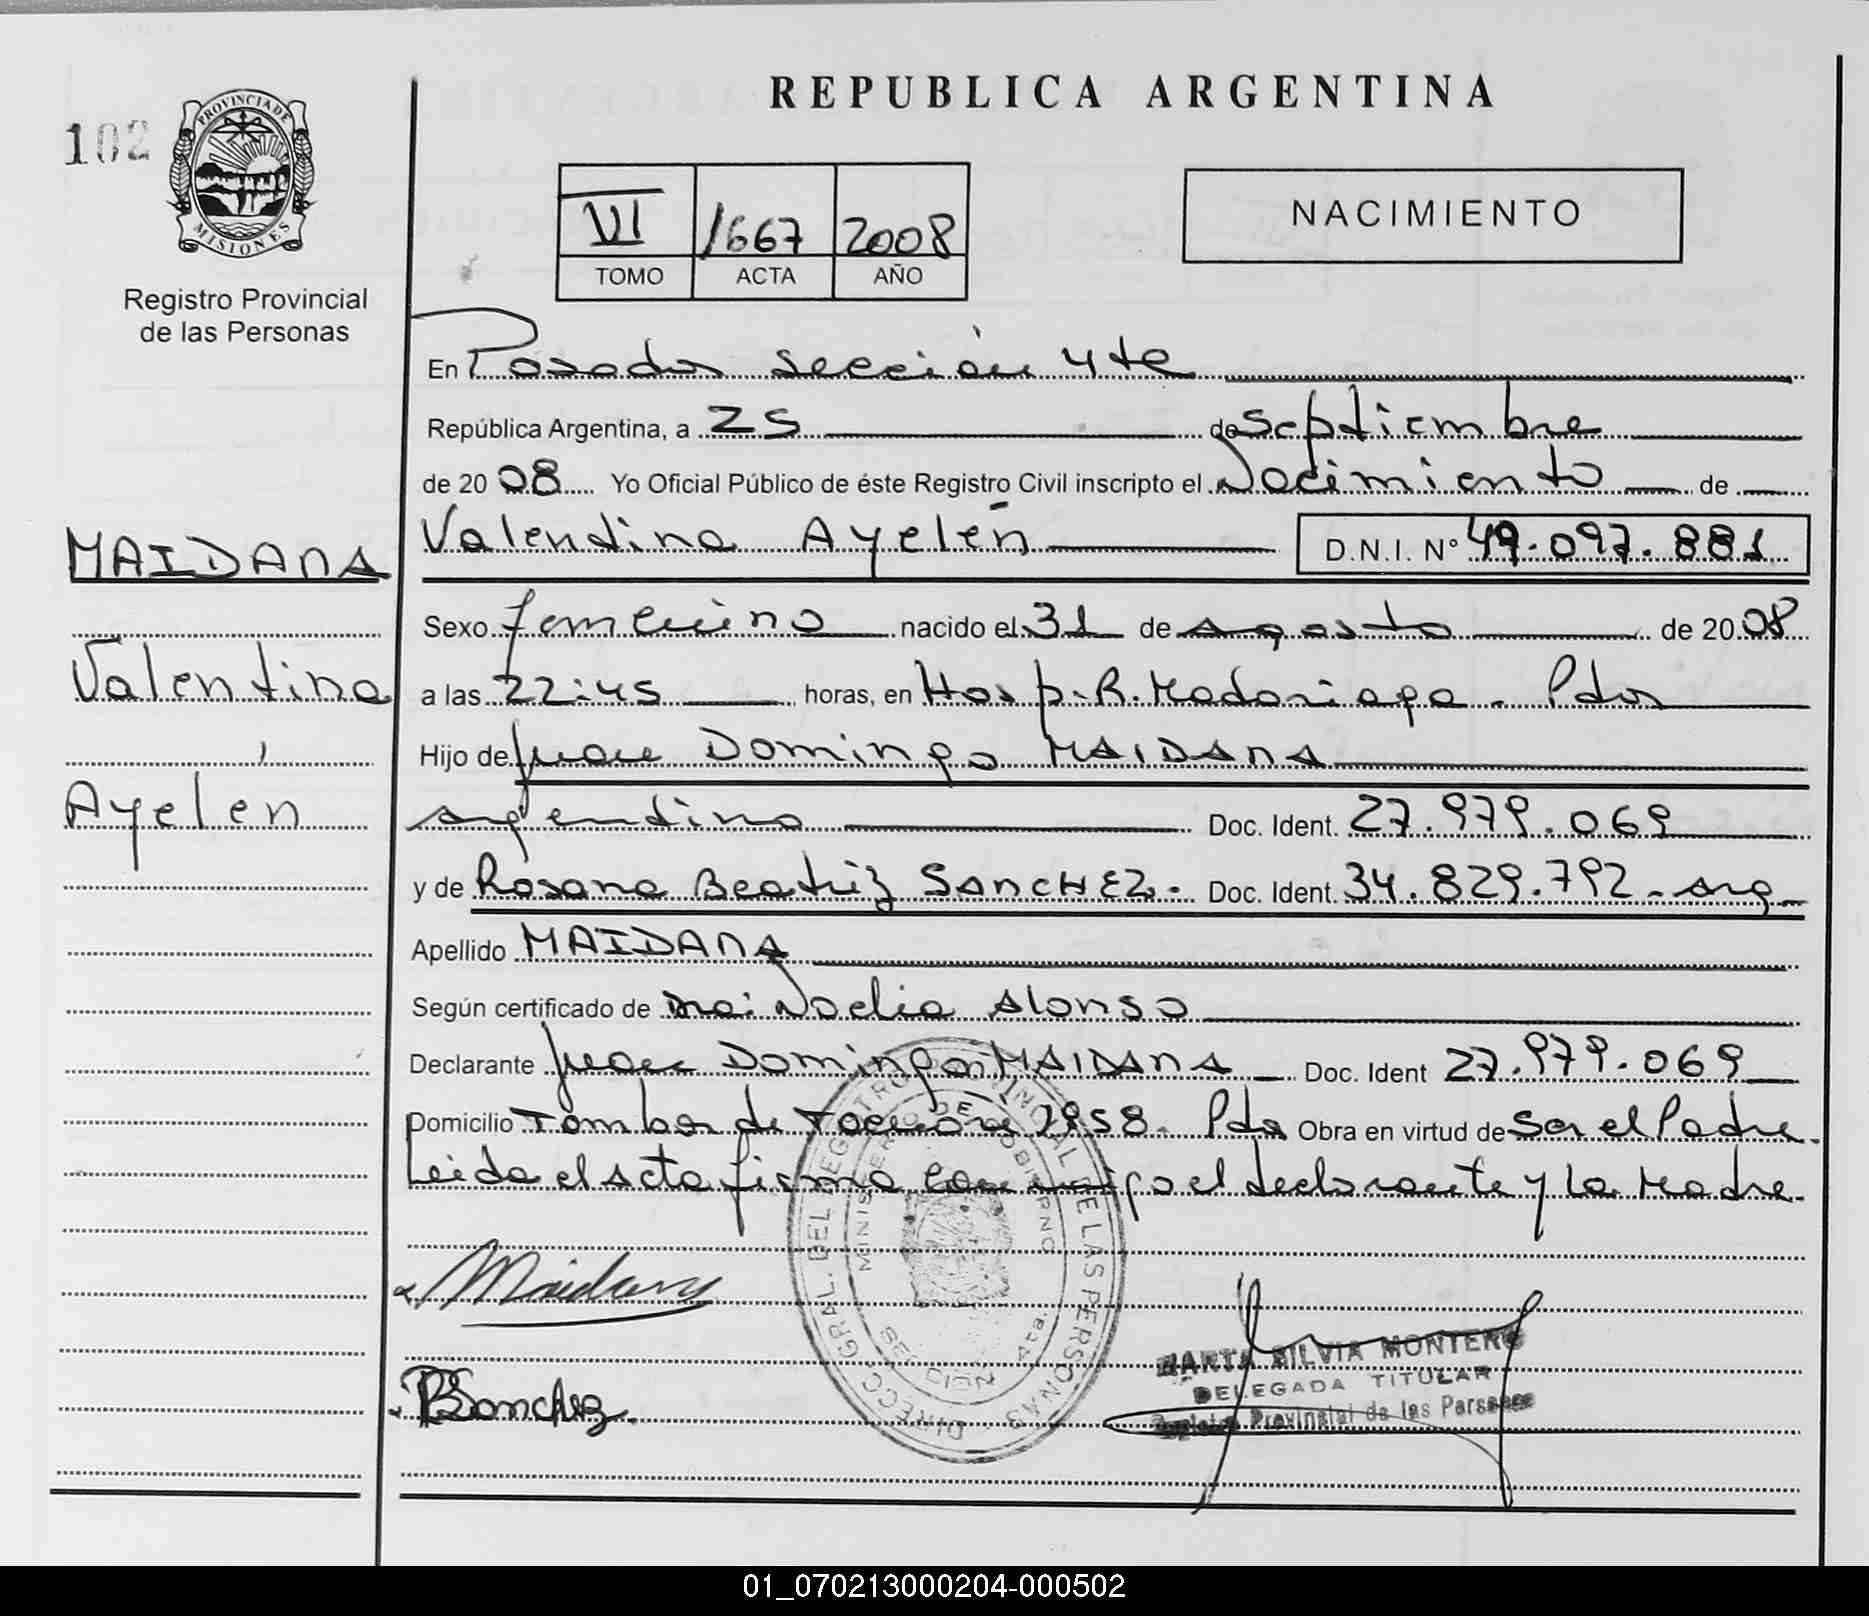 REPUBLICA ARGENTINA
102
PROVINCIA DE
MISIONES
Registro Provincial
de las Personas
NACIMIENTO
VI 1667 2008
TOMO ACTA AÑO
En Posadas sección 4ta
República Argentina, a 25 de Septiembre
de 2008 Yo Oficial Público de éste Registro Civil inscripto el Nacimiento de
Valentina Ayelén D.N.I. Nº 49.097.881
MAIDANA
Valentina
Ayelén
Sexo femenino nacido el 31 de agosto de 2008
a las 22:45 horas, en Hosp. R. Madariaga - Pdas
Hijo de Juan Domingo MAIDANA
argentino Doc. Ident. 27.979.069
y de Rosana Beatriz SANCHEZ.- Doc. Ident. 34.829.792 - arg
Apellido MAIDANA
Según certificado de Dra: Noelia Alonso
Declarante Juan Domingo MAIDANA Doc. Ident 27.979.069
Domicilio Tambor de Tacuary 2958. Pdas Obra en virtud de Ser el Padre.
Leida el Acta firma conmigo el declarante y la Madre.
Maidana
RBSanchez.
DIRECC. GRAL. DEL REGISTRO PROVINCIAL DE LAS PERSONAS
MINISTERIO DE GOBIERNO
MARTA SILVIA MONTERO
DELEGADA TITULAR
Registro Provincial de las Personas
01_070213000204-000502